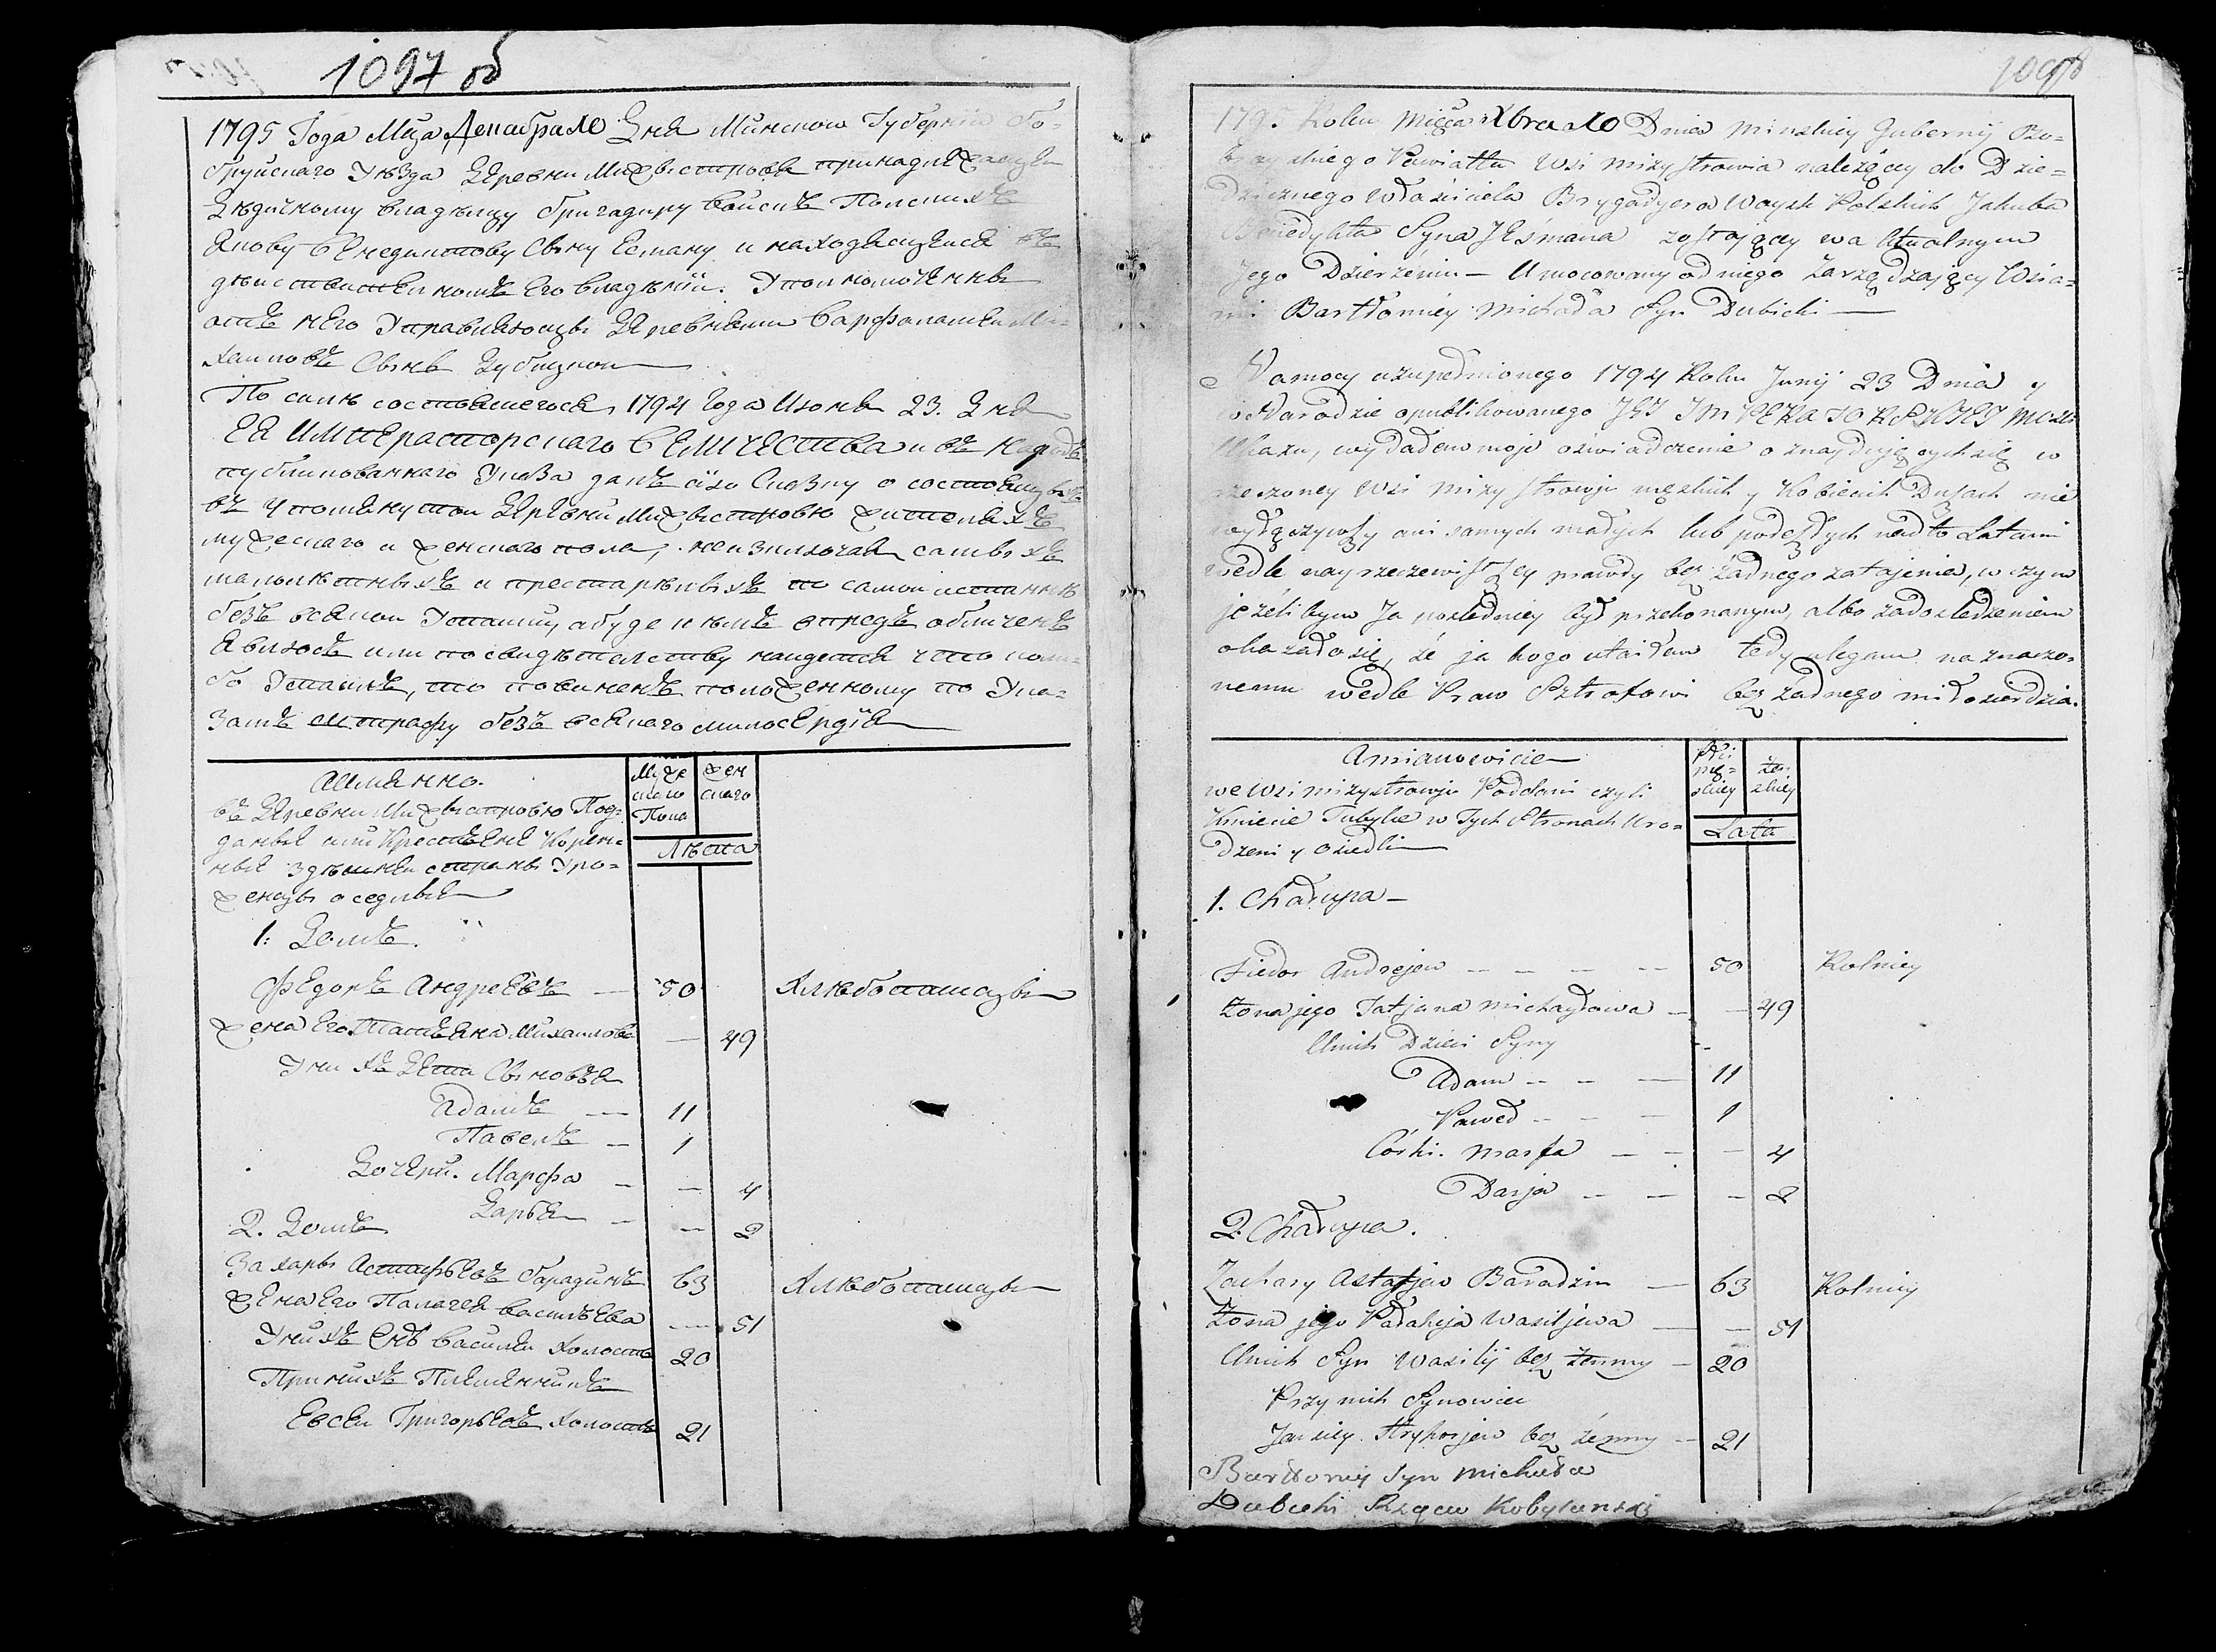 1097 об
1795 Года Мца Декабра 10 Дня Минской Губернiи Бо-
бруйскаго Уѣзда Деревни Мижыстровья принадлежащей
Дѣдичному владѣлцу бригадиру войскъ Полскихъ
Якову Бенедиктову Сыну Есману и находящейся въ
дѣйствителномъ Его владѣнiи. Уполномоченны
отъ него Управляющы Деревнями Варфоламей Ми-
хаиловъ Сынъ Дубицкой
По силѣ состоявшегося 1794 Года Июня 23. Дня
ЕЯ ИМПЕРАТОРСКАГО ВЕЛИЧЕСТВА и въ народѣ
публикованнаго Указа далъ сiю Сказку о состоящыхъ
въ упомянутой Деревни Мижыстровю жителяхъ
мужескаго и женскаго пола, неизключая самыхъ
малолѣтныхъ и престарѣлыхъ по самой истаннѣ
безъ всякой Утайки, а буде кѣмъ впредь обличенъ
Явлюсъ или по свидѣтелству найдется что кого ли-
бо Утаилъ, то повиненъ положенному по Ука-
замъ штрафу безъ всякаго милосЕрдiя
Аимянно.
въ Деревни Мижыстровю Под-
даныя или Крестьяне Корен-
ныя здѣшней страны Уро-
женцы оседлыя
Муже скаго Пола
жен скаго
Лѣта
1: Домъ.
Федоръ Андреевъ — 50 Хлѣбопашцы
жена Его Татьяна Михаилова — 49
У нихъ Дети Сыновья
Адамъ — 11
Павелъ — 1
Дочери. Марфа — — 4
Дарья — — 2
2. Домъ
Захары Астафьевъ Барадинъ 63 Хлѣбопашцы
Жена Его Палагея Васильева — 51
У нихъ Снъ Василей Холостъ 20
При нихъ Племянникъ
Евсей Григорьевъ Холостъ 21
1098
1795 Roku Mięca Xbra 10 Dnia Minskiey Gubernij Bo-
bruyskiego Powiatu Wsi Mizystrowia należącey do Dzie-
dzicznego Właściciela Brygadyera Woysk Polskich Jakuba
Benedykta Syna Jeśmana zostającey w aktualnym
Jego Dzierżeniu — Umocowany od niego Zarządzający Wsia-
mi Bartłomiey Michała Syn Dubicki —
Na mocy uzupełnionego 1794 Roku Junij 23 Dnia y
w Narodzie opublikowanego JEJ IMPERATORSKIEJ Mości
Ukazu, wydałem moje oświadczenie o znayduiących się w
rzeczoney Wsi Mizystrowju męskich y Kobiecich Duszach nie
wyłączywszy ani samych małych lub podeszłych nadto Latami
wedle nayrzeczewistszey prawdy bez żadnego zatajenia, w czym
jeżelibym Ja poźledniey był przekonanym, albo za dośledzeniem
okazało się, że ja kogo utaiłem tedy ulegam naznaczo-
nemu wedle Praw Sztrofowi bez żadnego miłosierdzia.
Amianowicie
we Wsi Mizystrowju Poddani czyli
Kmiecie Tubylce w Tych Stronach Uro-
dzeni y Osiedli
Płci męz= skiey
żen skiey
Lata
1. Chałupa —
Fiedor Andrejew — 50 Rolnicy
Żona jego Tatjana Michayłowa — 49
U nich Dzieci Syny
Adam — 11
Paweł — 1
Córki. Marfa — — 4
Darja — — 2
2. Chałupa.
Zachary Astafjew Baradzin — 63 Rolnicy
Żona jego Pałaheja Wasiljewa — — 51
U nich Syn Wasilij bez żenny — 20
Przy nich Synowiec
Jawsiey Hryhorjew bez żenny — 21
Bartłomiy Syn Michała
Dubicki Rządca Kobylanski